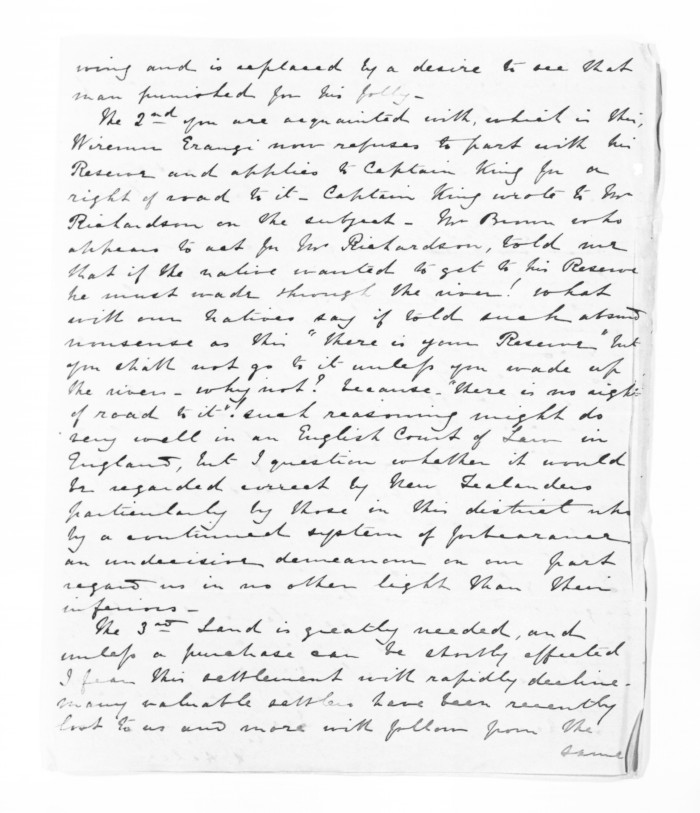 wing and is replaced by a desire to see that
man punished for his folly -
The 2nd you are acquainted with, which is this,
Wiremu Erangi now refuses to part with his
Reserve and applies to Captain King for a
right of road to it - Captain King wrote to Mr
Richardson on the subject - Mr Brown who
appears to act for Mr Richardson, told me
that if the native wanted to get to his Reserve
he must wade through the river! What
will our Natives say if told such absurd
nonsense as this "there is your Reserve" but
you shall not go to it unless you wade up
the river - why not? because - "there is no right
of road to it"! such reasoning might do
very well in an English Court of Law in
England, but I question whether it would
be regarded correct by New Zealanders
particularly by those in this district who
by a continued system of forbearance
an undecisive demeanour on our part
regard us in no other light than their
inferiors -
The 3rd Land is greatly needed, and
unless a purchase can be shortly effected
I fear this settlement will rapidly decline -
many valuable settlers have been recently
lost to us and more will follow from the
same